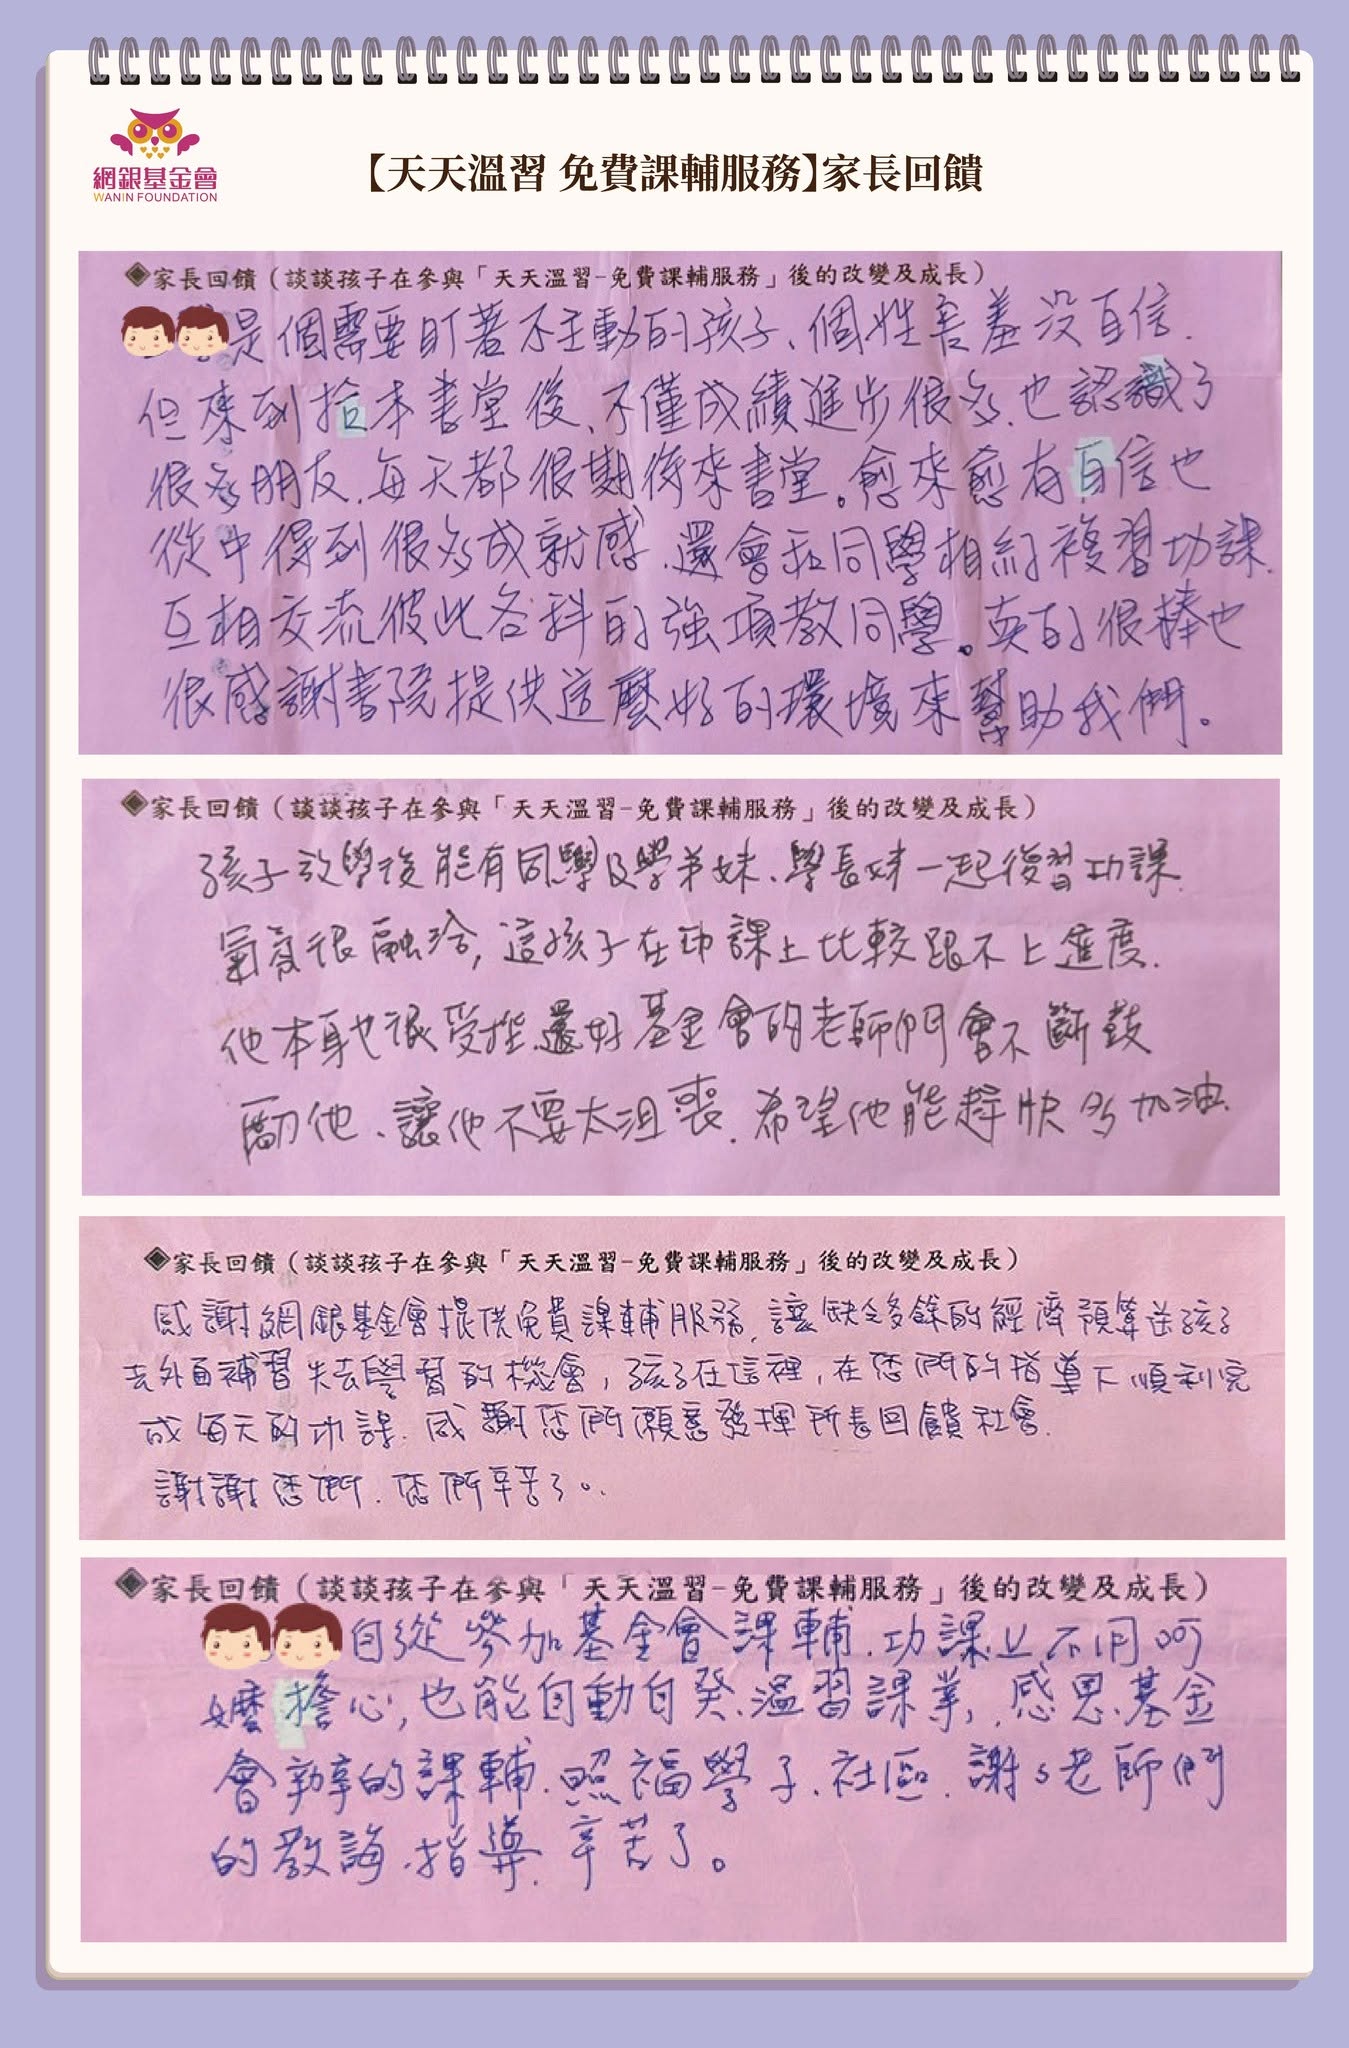 網銀基金會
WANIN FOUNDATION
【天天溫習 免費課輔服務】家長回饋
◈家長回饋（談談孩子在參與「天天溫習-免費課輔服務」後的改變及成長）
是個需要盯著不主動的孩子、個性害羞沒自信.
但來到拾本書堂後、不僅成績進步很多.也認識了
很多朋友.每天都很期待來書堂。愈來愈有自信也
從中得到很多成就感.還會和同學相約複習功課.
互相交流彼此各科的強項教同學。真的很棒也
很感謝書院提供這麼好的環境來幫助我們。
◈家長回饋（談談孩子在參與「天天溫習-免費課輔服務」後的改變及成長）
孩子放學後能有同學及學弟妹、學長姊一起復習功課.
氣氛很融洽，這孩子在功課上比較跟不上進度.
他本身也很受挫.還好基金會的老師們會不斷鼓
勵他、讓他不要太沮喪.希望他能趕快多加油.
◈家長回饋（談談孩子在參與「天天溫習-免費課輔服務」後的改變及成長）
感謝網銀基金會提供免費課輔服務,讓缺乏多餘的經濟預算送孩子
去外面補習失去學習的機會，孩子在這裡，在您們的指導下順利完
成每天的功課.感謝您們願意發揮所長回饋社會.
謝謝您們.您們辛苦了。
◈家長回饋（談談孩子在參與「天天溫習-免費課輔服務」後的改變及成長）
自從參加基金會課輔.功課上不用阿
嬤擔心，也能自動自發.溫習課業，感恩.基金
會辦的課輔.照福學子.社區.謝s老師們
的教誨.指導.辛苦了。